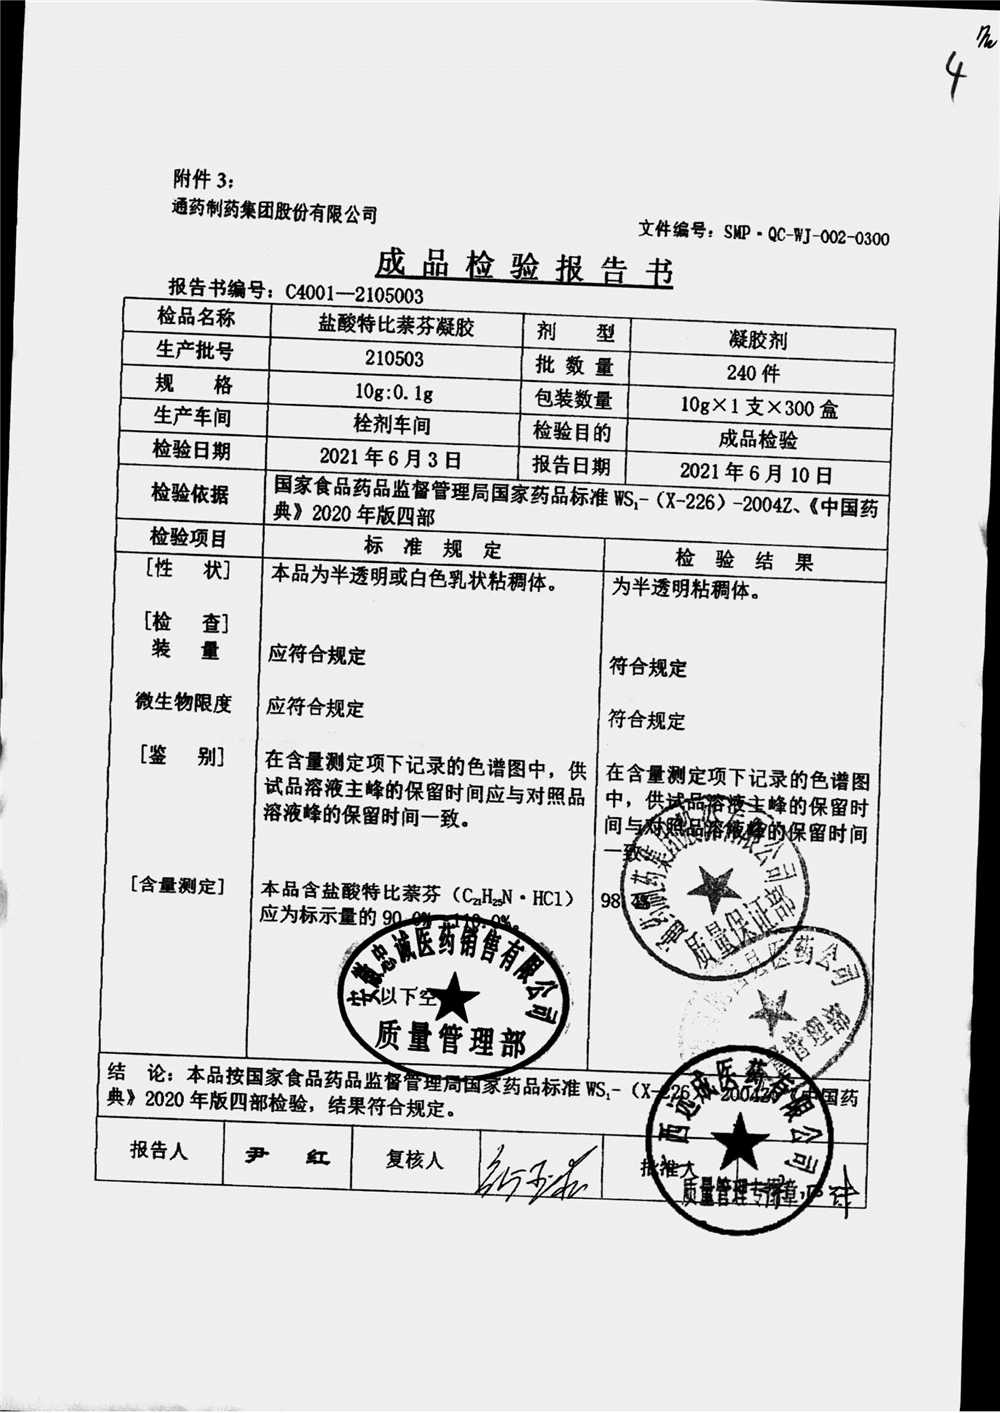 4
附件 3:
通药制药集团股份有限公司
文件编号: SMP·QC-WJ-002-0300
成品检验报告书
报告书编号: C4001—2105003
检品名称 盐酸特比萘芬凝胶 剂 型 凝胶剂
生产批号 210503 批 数 量 240 件
规 格 10g:0.1g 包装数量 10g×1 支×300 盒
生产车间 栓剂车间 检验目的 成品检验
检验日期 2021 年 6 月 3 日 报告日期 2021 年 6 月 10 日
检验依据 国家食品药品监督管理局国家药品标准 WS₁-(X-226)-2004Z、《中国药
典》2020 年版四部
检验项目 标 准 规 定 检 验 结 果
[性 状] 本品为半透明或白色乳状粘稠体。 为半透明粘稠体。
[检 查]
装 量 应符合规定 符合规定
微生物限度 应符合规定 符合规定
[鉴 别] 在含量测定项下记录的色谱图中,供 在含量测定项下记录的色谱图
试品溶液主峰的保留时间应与对照品 中,供试品溶液主峰的保留时
溶液峰的保留时间一致。 间与对照品溶液峰的保留时间
一致
[含量测定] 本品含盐酸特比萘芬(C₂₁H₂₅N·HCl) 98
应为标示量的 90.0% 110.0%。
以下空
安徽忠诚医药销售有限公司
质量管理部
质量保证部
医药公司
管理部
结 论: 本品按国家食品药品监督管理局国家药品标准 WS₁-(X-226)-2004Z、《中国药
典》2020 年版四部检验,结果符合规定。
报告人 尹 红 复核人 批准人
西远成医药有限公司
质量管理专用章